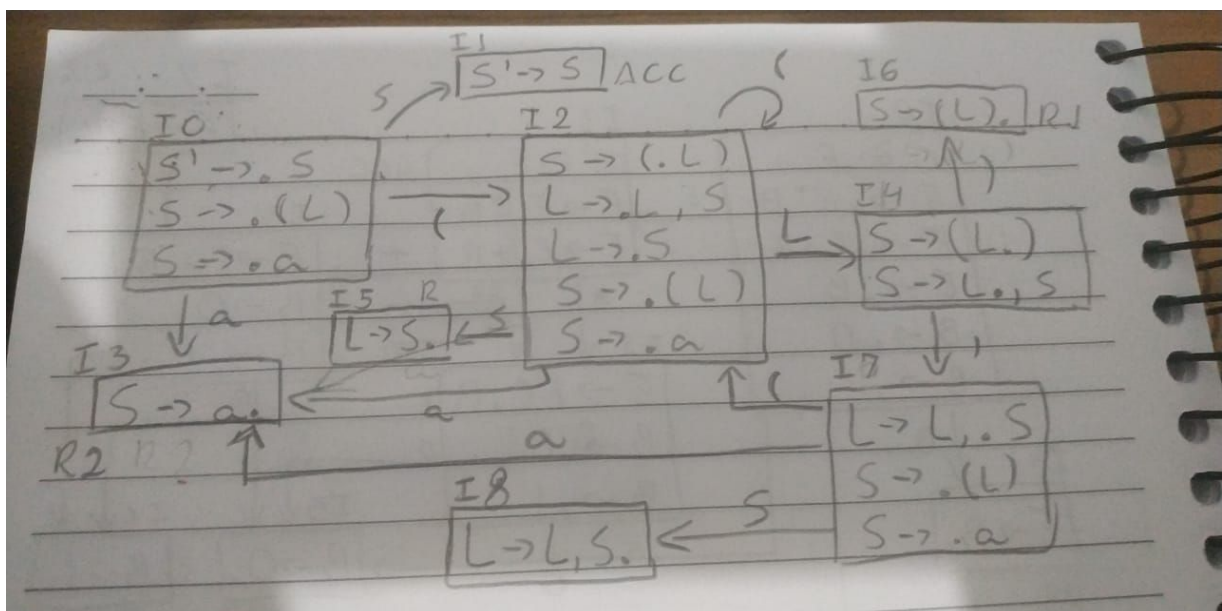 I1
S' -> S ACC
S
(
I6
S -> (L). R1
I0
S' -> . S
S -> . (L)
S -> . a
(
I2
S -> (. L)
L -> . L, S
L -> . S
S -> . (L)
S -> . a
L
)
I4
S -> (L.)
S -> L., S
,
a
I5 R
L -> S.
S
I3
S -> a.
R2
a
(
a
I7
L -> L, . S
S -> . (L)
S -> . a
S
I8
L -> L, S.